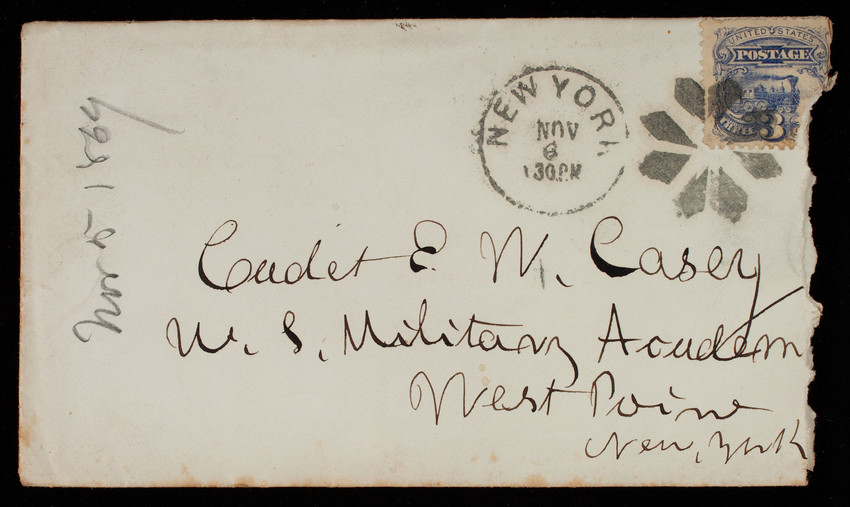 UNITED STATES
POSTAGE
THREE
3
NEW YORK
NOV
6
130 P.M
Nov 5 1869
Cadet E. W. Casey
U. S. Military Academy
West Point
New, York